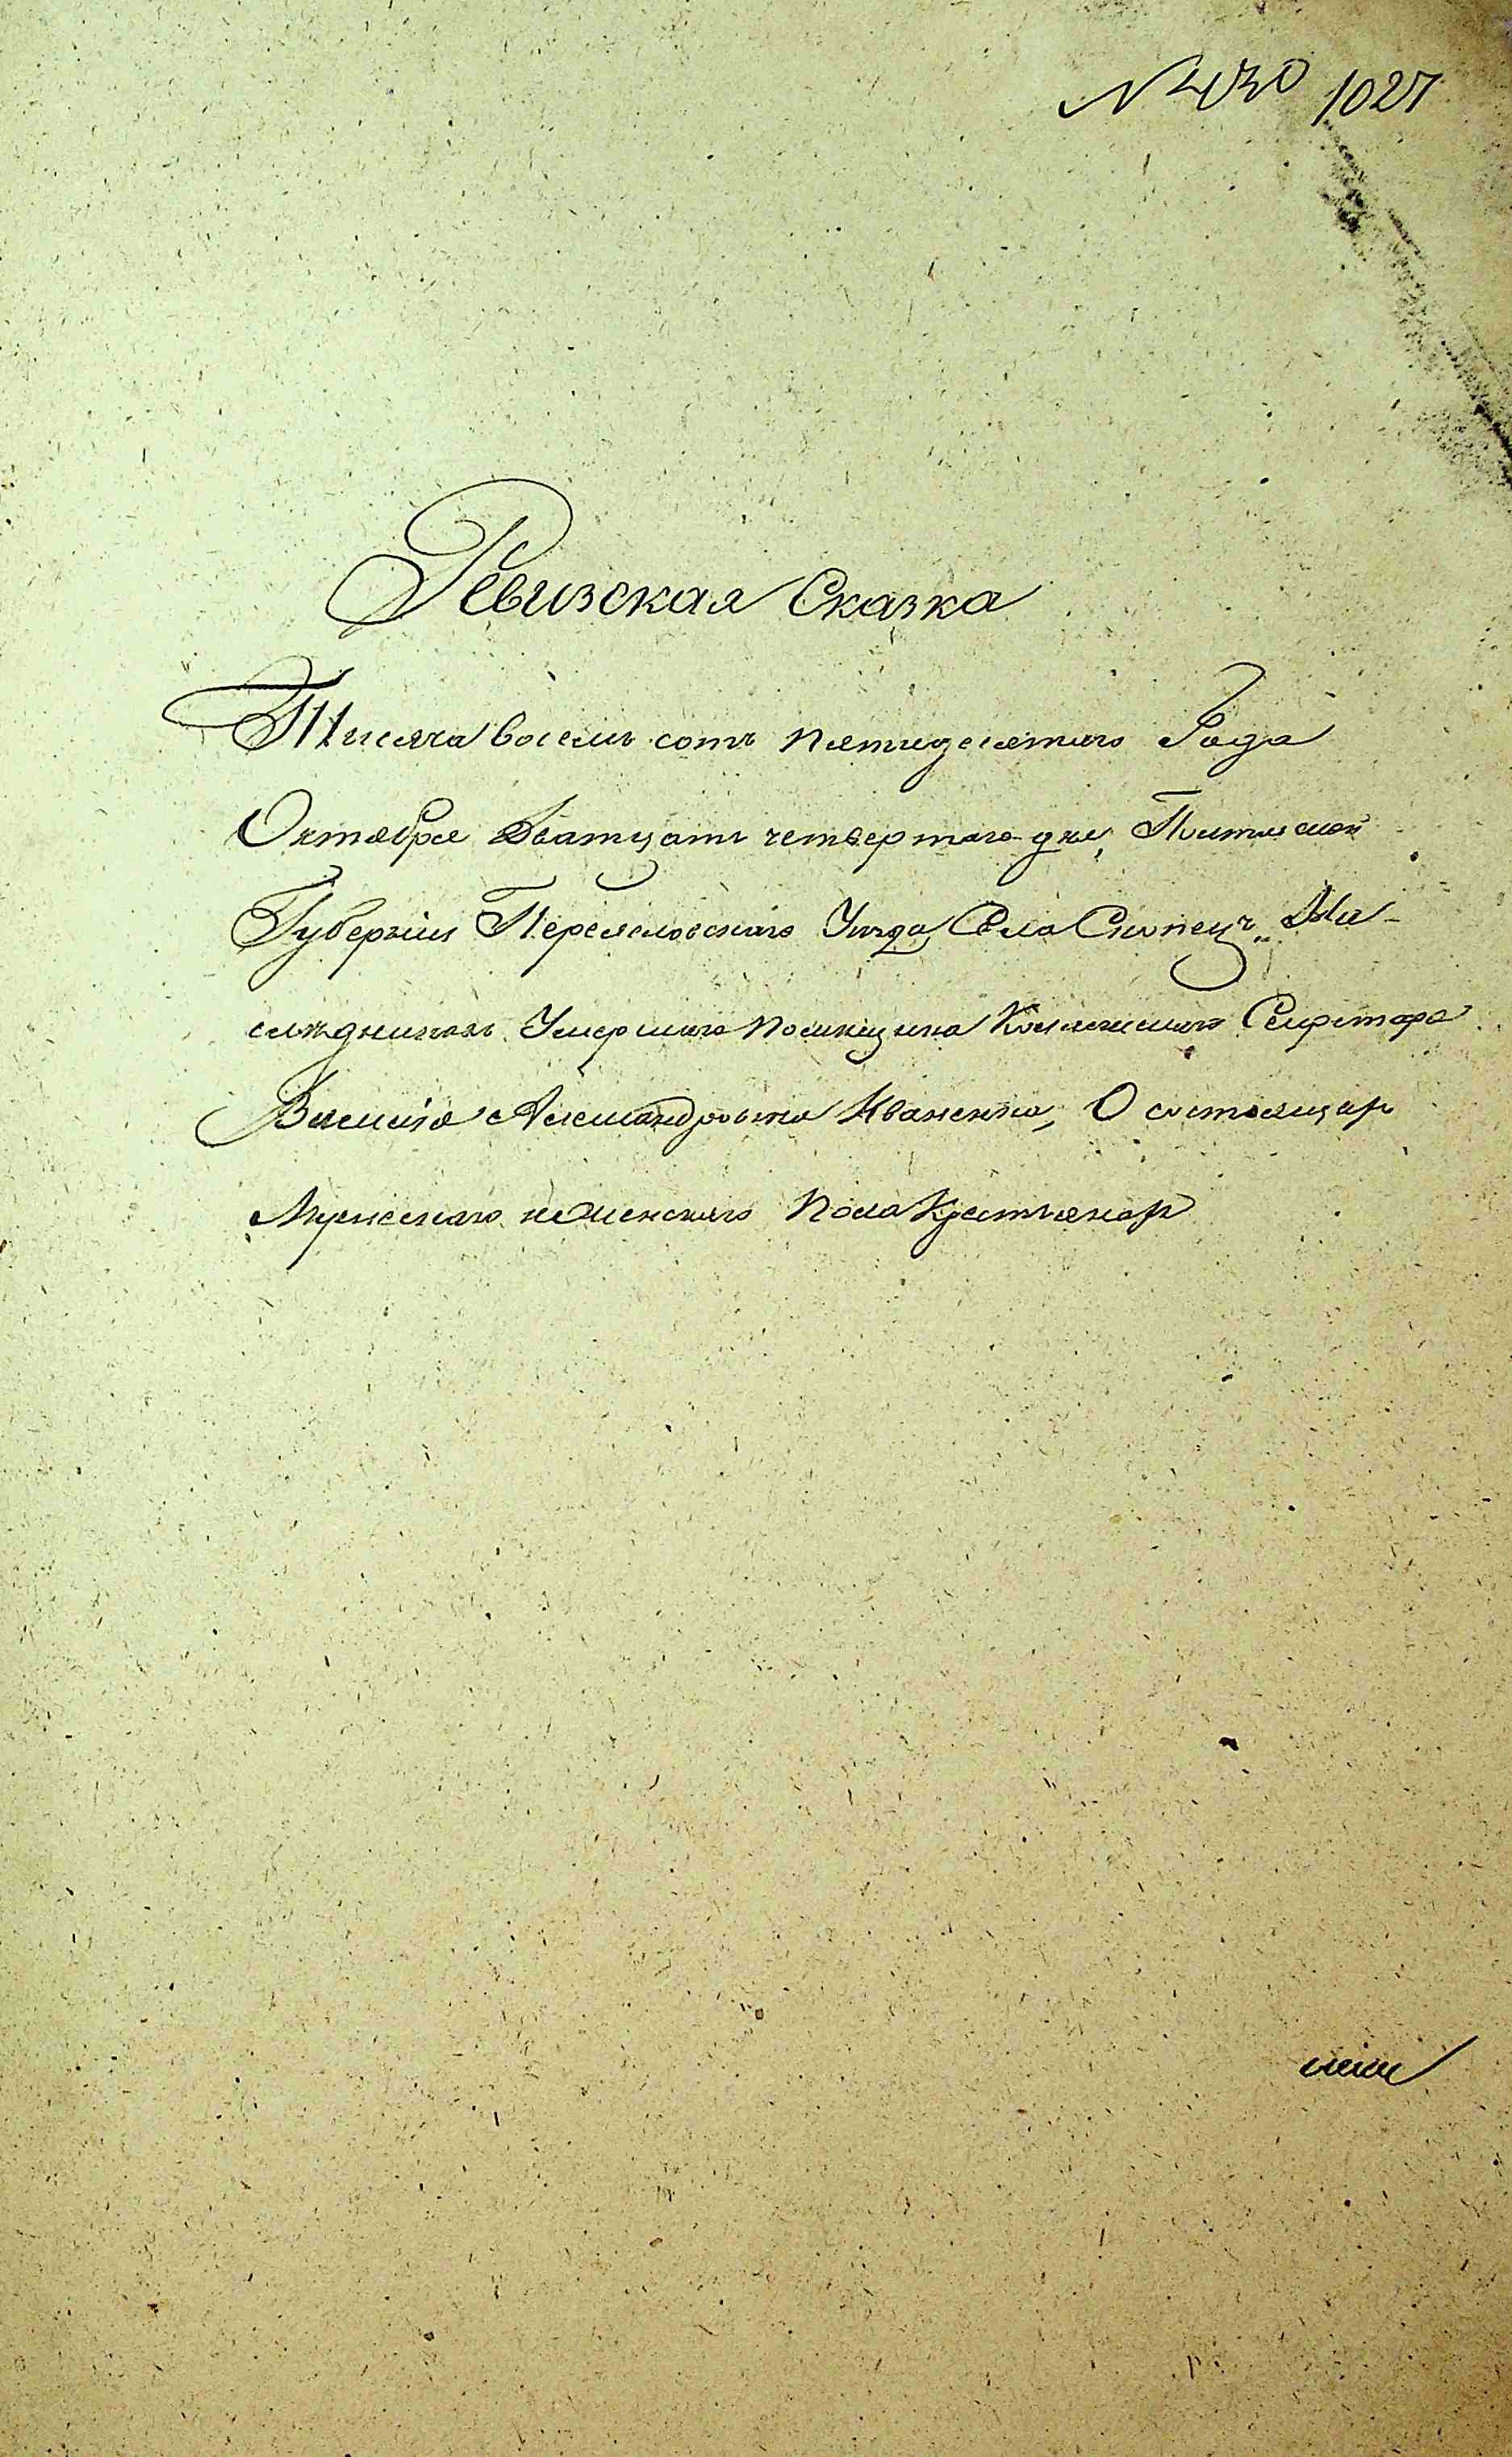 № 430 1027
Ревизская Сказка
Тисяча восемь сотъ пятидесятаго Года
Октября Дватцать четвертаго дня, Полтавской
Губерніи Переяславскаго Уезда, Села Скопецъ, На-
следниковъ Умершаго помещика Колежскаго Секретаря
Василія Александровича Иваненка, О состоящихъ
Мужескаго и Женскаго Пола Крестьянах